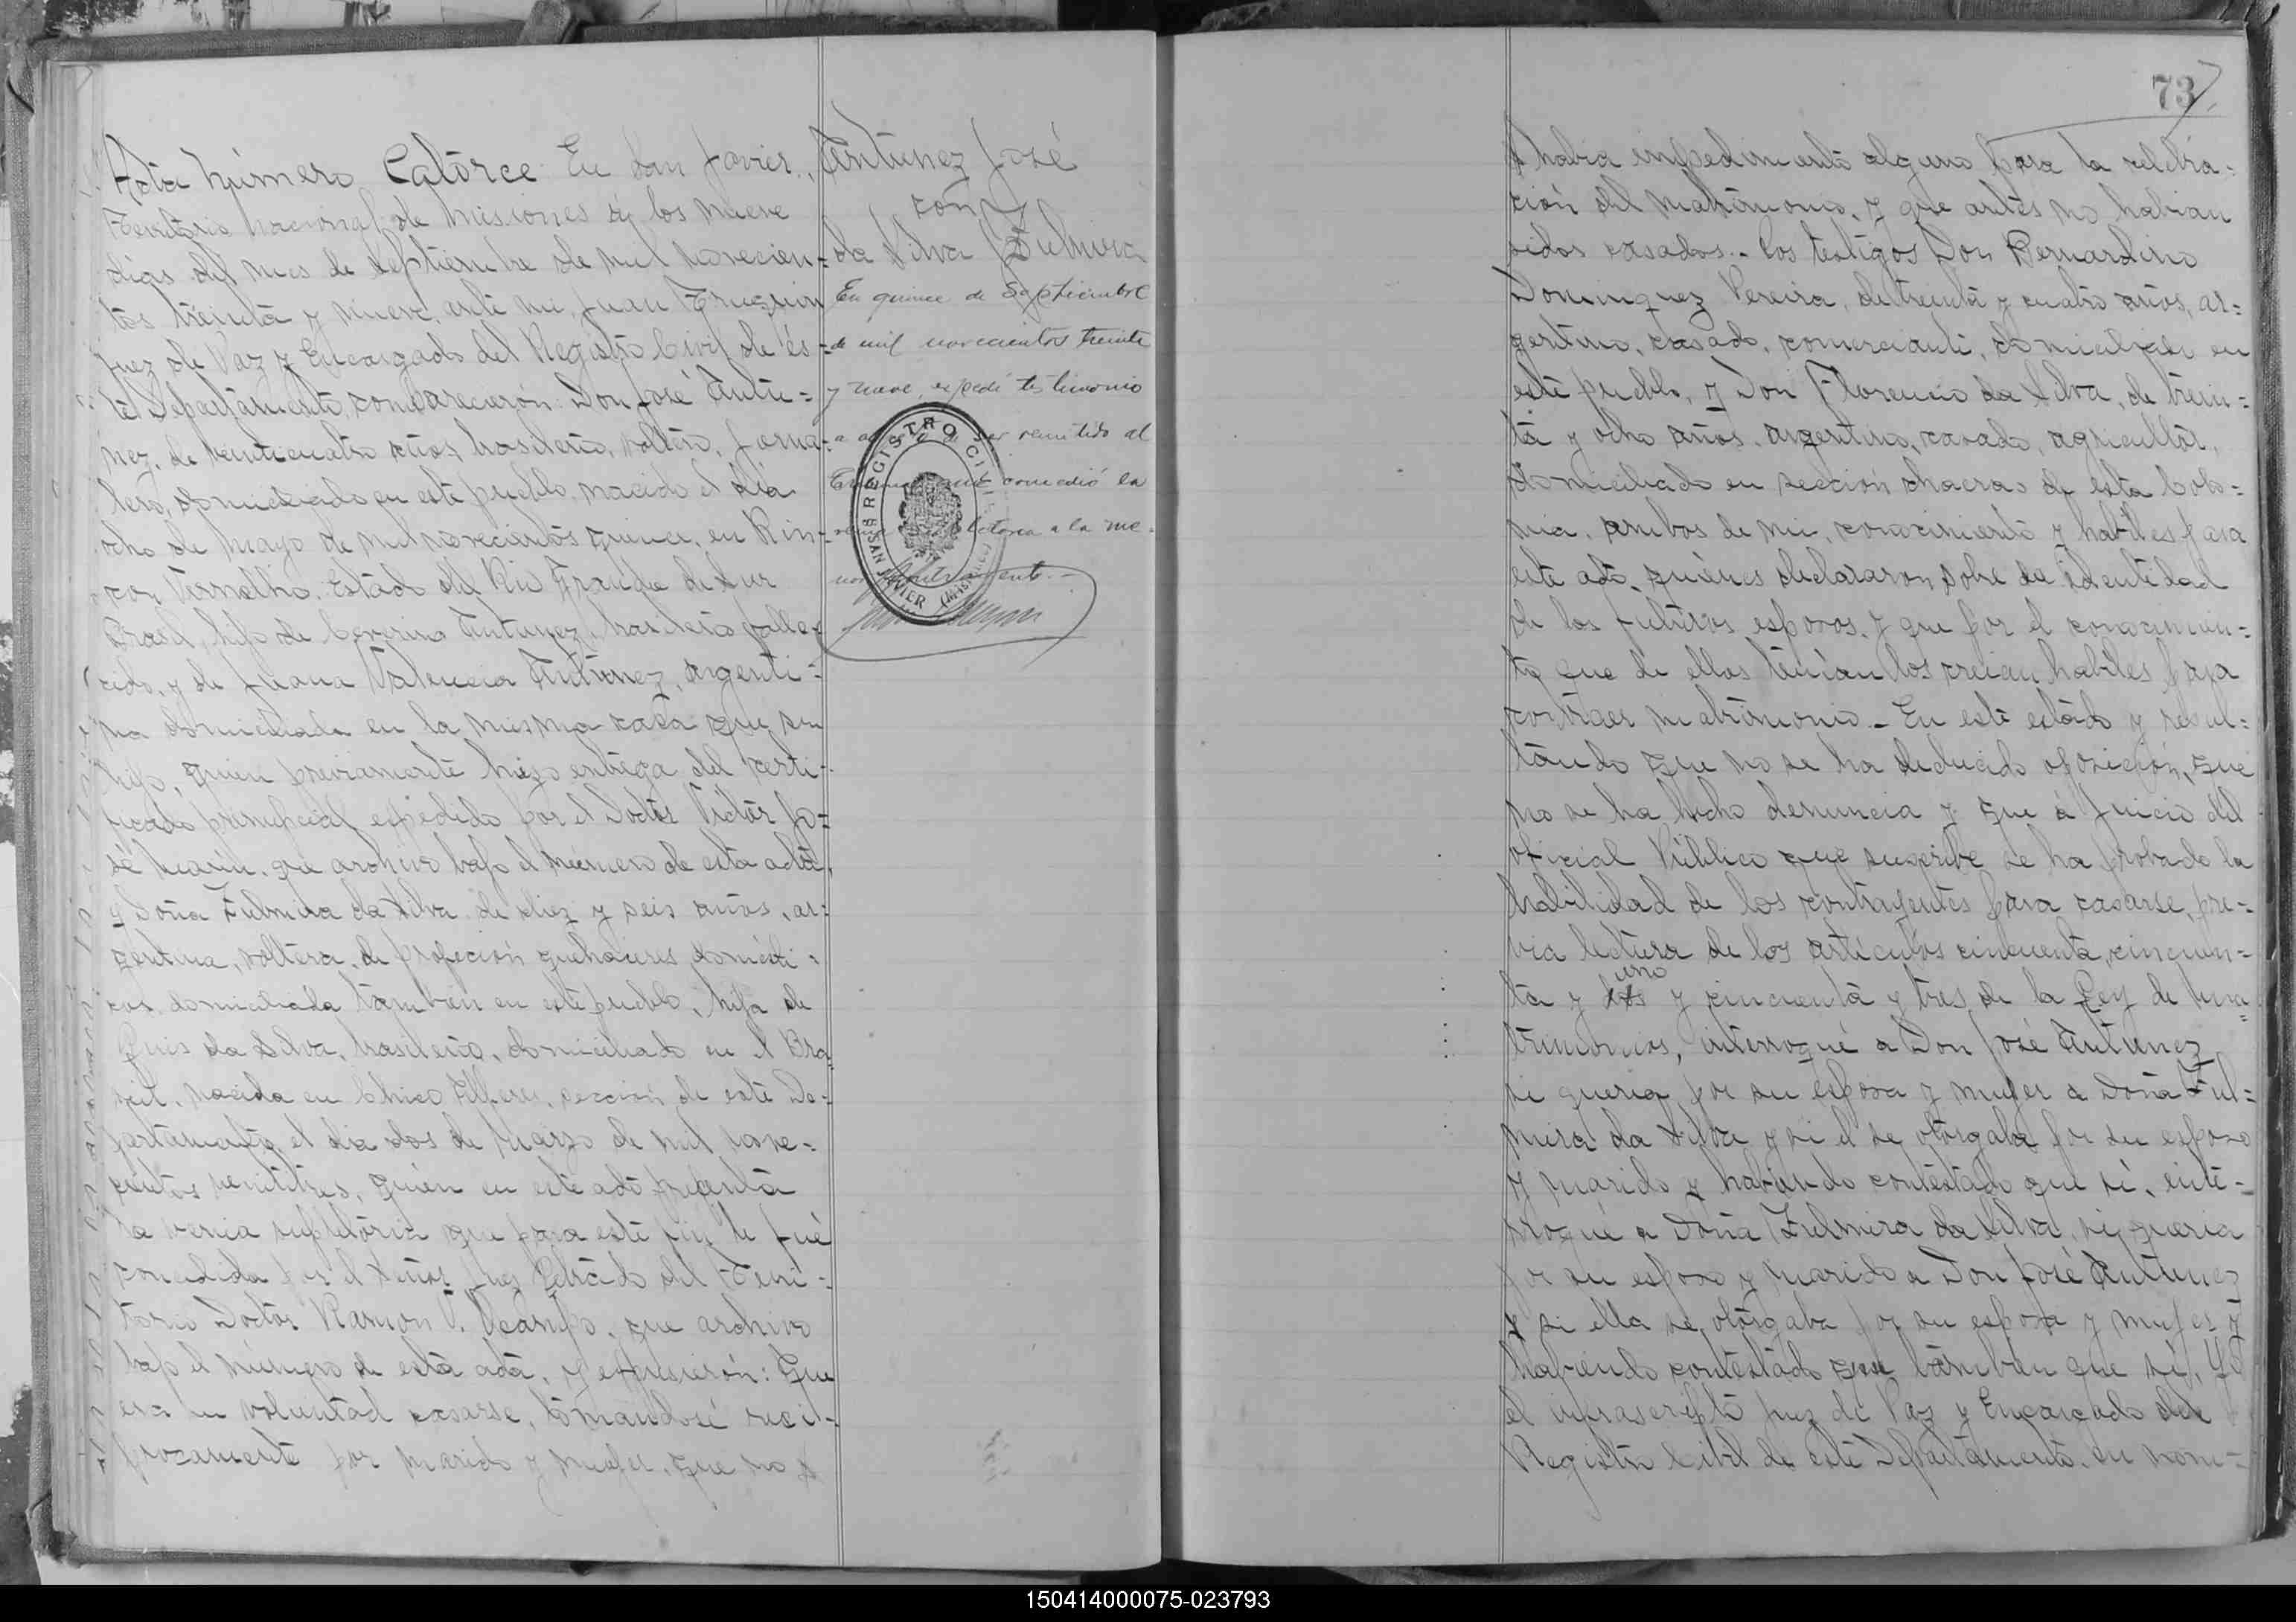 Acta número Catorce En San Javier,
Territorio nacional de Misiones á los nueve
dias del mes de Septiembre de mil novecien=
tos treinta y nueve, ante mi, Juan
Juez de Paz y Encargado del Registro Civil de és=
te Departamento, comparecieron: Don José Antu=
nez, de veinticuatro años, brasilero, soltero, jorna=
lero, domiciliado en este pueblo, nacido el dia
ocho de Mayo de mil novecientos quince, en Rin=
con Vermelho, Estado del Rio Grande del Sur
Brasil, hijo de Ceverino Antunez, brasilero falle=
cido, y de Juana Valencia Antunez, argenti=
na domiciliada en la misma casa que su
hijo, quien previamente hizo entrega del certi=
ficado prenupcial espedido por el Doctor Victor Jo=
sé que archivo bajo el número de esta acta,
y Doña Zulmira da Silva de diez y seis años, ar=
gentina, soltera, de profecion quehaceres domésti=
cos, domiciliada tambien en este pueblo, hija de
Luis da Silva, brasilero, domiciliado en el Bra
sil, nacida en seccion de este De=
partamento, el dia dos de Marzo de mil nove=
cientos veintitres, quién en este acto presenta
la venia supletoria que para este fin le fué
concedida por el Señor Juez Letrado del Terri=
torio Doctor Ramon V. Ocampo, que archivo
bajo el número de esta acta, y espusierón: Que
era su voluntad casarse, tomandosé reci=
procamente por marido y mujer, que no
Antunez José
con
da Silva Zulmira
En quince de Septiembre
de mil novecientos treinta
y nueve, espedí testimonio
a ser remitido al
que concedió la
a la me=
nor contrayente.-
REGISTRO CIVIL
SAN JAVIER (MISIONES)
73
habia impedimento alguno para la celebra=
ción del matrimonio, y que antes no habian
sidos casados.- Los testigos Don Bernardino
Dominguez Pereira, de treinta y cuatro años, ar=
gentino, casado, comerciante, domiciliado en
este pueblo, y Don Florencio da Silva, de trein=
ta y ocho años, argentino, casado, agricultor,
domiciliado en sección chacras de esta Colo=
nia, ambos de mi conocimiento y habiles para
este acto, quiénes declararon sobre la identidad
de los futuros esposos, y que por el conocimien=
to que de ellos tenian los creian habiles para
contraer matrimonio.- En este estado y resul=
tando que no se ha deducido oposición, que
no se ha hecho denuncia y que á juicio del
oficial Público que suscribe se ha probado la
habilidad de los contrayentes para casarse, pre=
via lectura de los articulos cincuenta, cincuen=
ta y uno y cincuenta y tres de la Ley de ma
trimonios, interroqué a Don José Antunez
si queria por su esposa y mujer a Doña Zul=
mira da Silva y si el se otorgaba por su esposo
y marido y habiendo contestado que sí, inte=
rroqué a Doña Zulmira da Silva, si queria
por su esposo y marido a Don José Antunez
y si ella se otorgaba por su esposa y mujer y
habiendo contestado que tambien que sí, Yo
el infrascripto Juez de Paz y Encargado del
Registro Civil de este Departamento en nom=
150414000075-023793